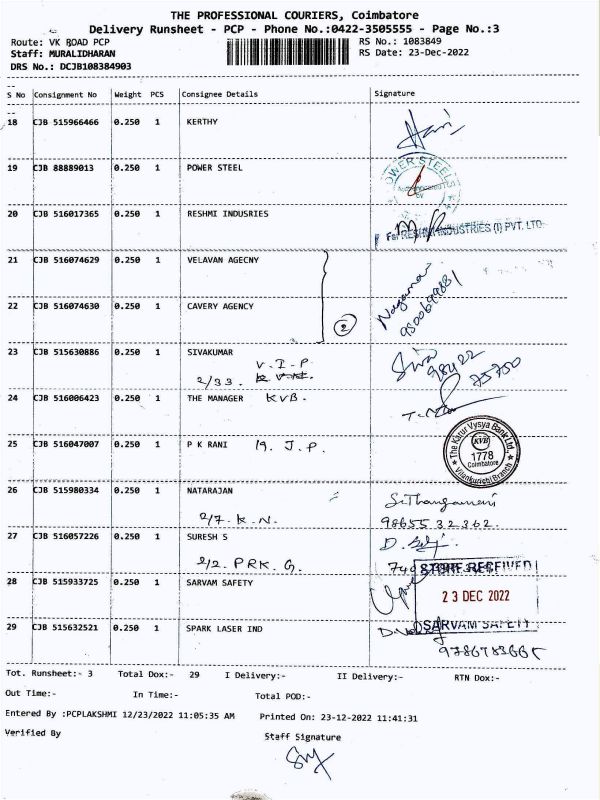 THE PROFESSIONAL COURIERS, Coimbatore
Delivery Runsheet - PCP - Phone No.:0422-3505555 - Page No.:3
Route: VK ROAD PCP RS No.: 1083849
Staff: MURALIDHARAN RS Date: 23-Dec-2022
DRS No.: DCJB108384903
S No Consignment No Weight PCS Consignee Details Signature
18 CJB 515966466 0.250 1 KERTHY
19 CJB 88889013 0.250 1 POWER STEEL
POWER STEEL
20 CJB 516017365 0.250 1 RESHMI INDUSRIES
For RESHMI INDUSTRIES (I) PVT. LTD
21 CJB 516074629 0.250 1 VELAVAN AGECNY
22 CJB 516074630 0.250 1 CAVERY AGENCY
2
23 CJB 515630886 0.250 1 SIVAKUMAR
V.I.P
2/33.
Siva
98422
75750
24 CJB 516006423 0.250 1 THE MANAGER KVB.
25 CJB 516047007 0.250 1 P K RANI 19. J.P.
The Karur Vysya Bank Ltd.,
KVB
1778
Coimbatore
Vilankurichi Branch
26 CJB 515980334 0.250 1 NATARAJAN
2/7. K.N.
98655 32362.
27 CJB 516057226 0.250 1 SURESH S
2/2. PRK. G.
STORE RECEIVED
28 CJB 515933725 0.250 1 SARVAM SAFETY
23 DEC 2022
SARVAM SAFETY
29 CJB 515632521 0.250 1 SPARK LASER IND
Tot. Runsheet:- 3 Total Dox:- 29 I Delivery:- II Delivery:- RTN Dox:-
Out Time:- In Time:- Total POD:-
Entered By :PCPLAKSHMI 12/23/2022 11:05:35 AM Printed On: 23-12-2022 11:41:31
Verified By Staff Signature